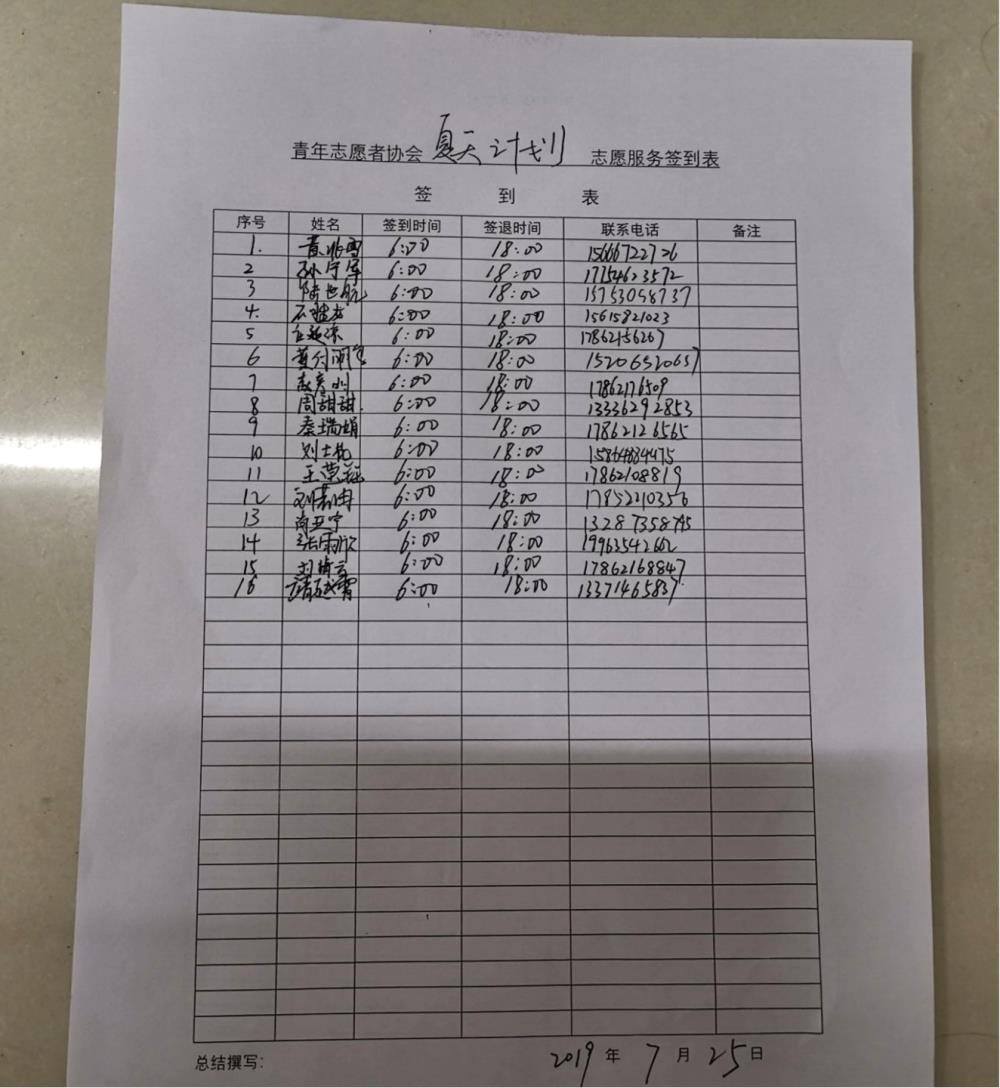 青年志愿者协会 夏天计划 志愿服务签到表
签 到 表
序号 姓名 签到时间 签退时间 联系电话 备注
1. 6:00 18:00 15666722726
2 孙宁军 6:00 18:00 17754623572
3 陆世航 6:00 18:00 15753058737
4. 6:00 18:00 15615821023
5 6:00 18:00 17862156267
6 6:00 18:00 15206520657
7 6:00 18:00 17862176509
8 周甜甜 6:00 18:00 13336292853
9 秦瑞娟 6:00 18:00 17862126565
10 6:00 18:00 15864834475
11 6:00 18:00 17862108819
12 6:00 18:00 17852210356
13 尚亚宁 6:00 18:00 13287358745
14 张雨欣 6:00 18:00 19963542662
15 6:00 18:00 17862168847
16 6:00 18:00 13371465837
总结撰写: 2019 年 7 月 25 日